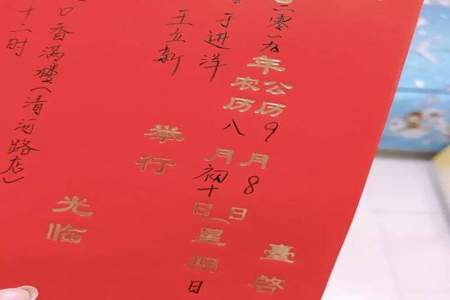 臺啓
零一九年公历9月8日
农历八月初十日(星期日
于进洋
王立新
举行
光临
口香满楼(清河路店)
十一时